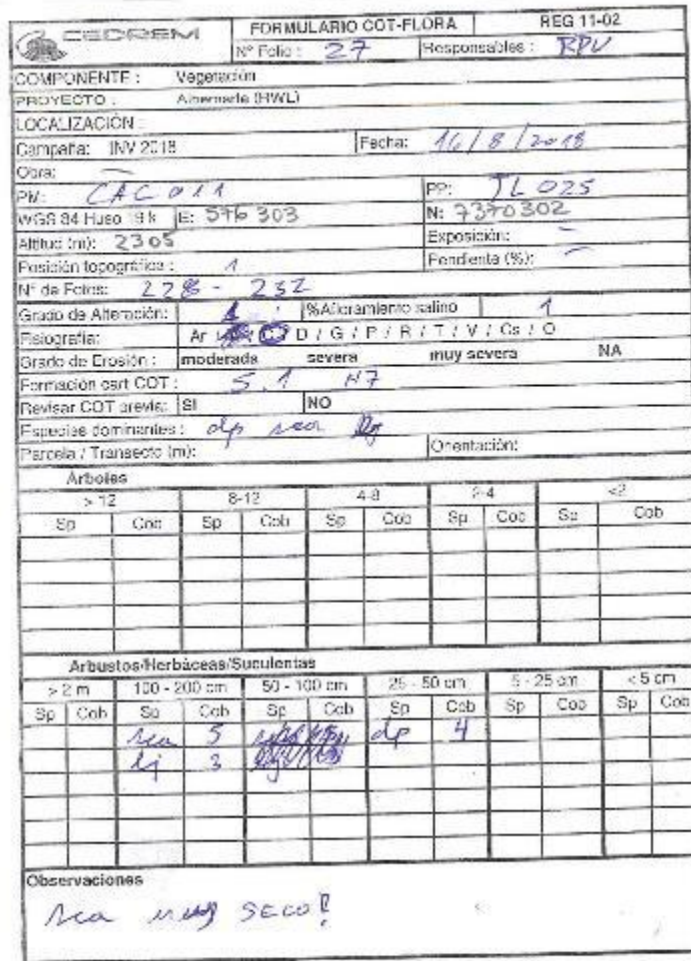 CEDREM
FORMULARIO COT-FLORA REG 11-02
N° Folio : 27 Responsables : RPV
COMPONENTE : Vegetación
PROYECTO : Albemarle (HWL)
LOCALIZACIÓN :
Campaña: INV 2018 Fecha: 16/8/2018
Obra: —
PM: CAC011 PP: JL025
WGS 84 Huso 19 k E: 576303 N: 7370302
Altitud (m): 2305 Exposición: —
Posición topográfica : 1 Pendiente (%): —
N° de Fotos: 228 - 232
Grado de Alteración: 1 %Afloramiento salino 1
Fisiografía: Ar / C / D / G / P / R / T / V / Cs / O
Grado de Erosión : moderada severa muy severa NA
Formación cart COT : 5.1 H7
Revisar COT previa: SI NO
Especies dominantes : dp sca lj
Parcela / Transecto (m): Orientación:
Árboles
> 12 8-12 4-8 2-4 <2
Sp Cob Sp Cob Sp Cob Sp Cob Sp Cob
Arbustos/Herbáceas/Suculentas
> 2 m 100 - 200 cm 50 - 100 cm 25 - 50 cm 5 - 25 cm < 5 cm
Sp Cob Sp Cob Sp Cob Sp Cob Sp Cob Sp Cob
sca 5 dp 4
lj 3
Observaciones
sca muy SECO!